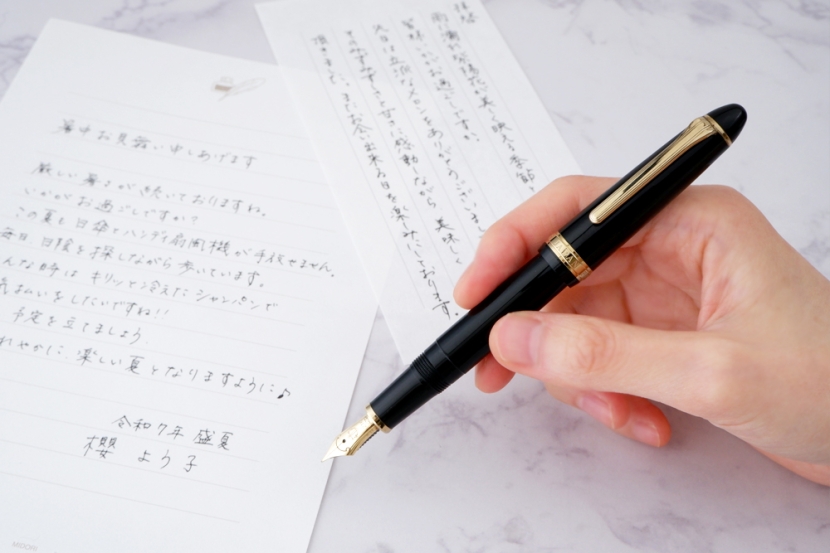 暑中お見舞い申しあげます
厳しい暑さが続いておりますね。
いかがお過ごしですか?
この夏も日傘とハンディ扇風機が手放せません。
毎日日陰を探しながら歩いています。
んな時は キリッと冷えた シャンパンで
気払いをしたいですね!!
予定を立てましょう。
れやかに、楽しい夏となりますように♪
令和7年 盛夏
櫻 よう子
拝啓
紫陽花が美しく映える季節
皆様いかがお過ごしですか。
先日は立派なメロンをありがとうございま
そのみずみずしさと甘さに感動しながら 美味し
頂きました。またお会い出来る日を楽しみにしております。
MIDORI